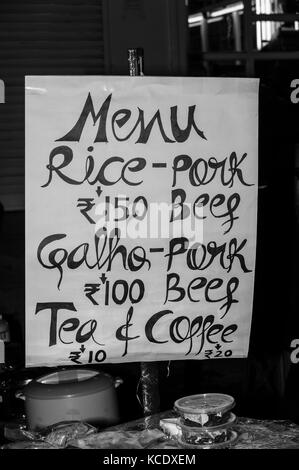 Menu
Rice - Pork
₹ 150 Beef
Galho - Pork
₹ 100 Beef
Tea & Coffee
₹ 10 ₹ 20